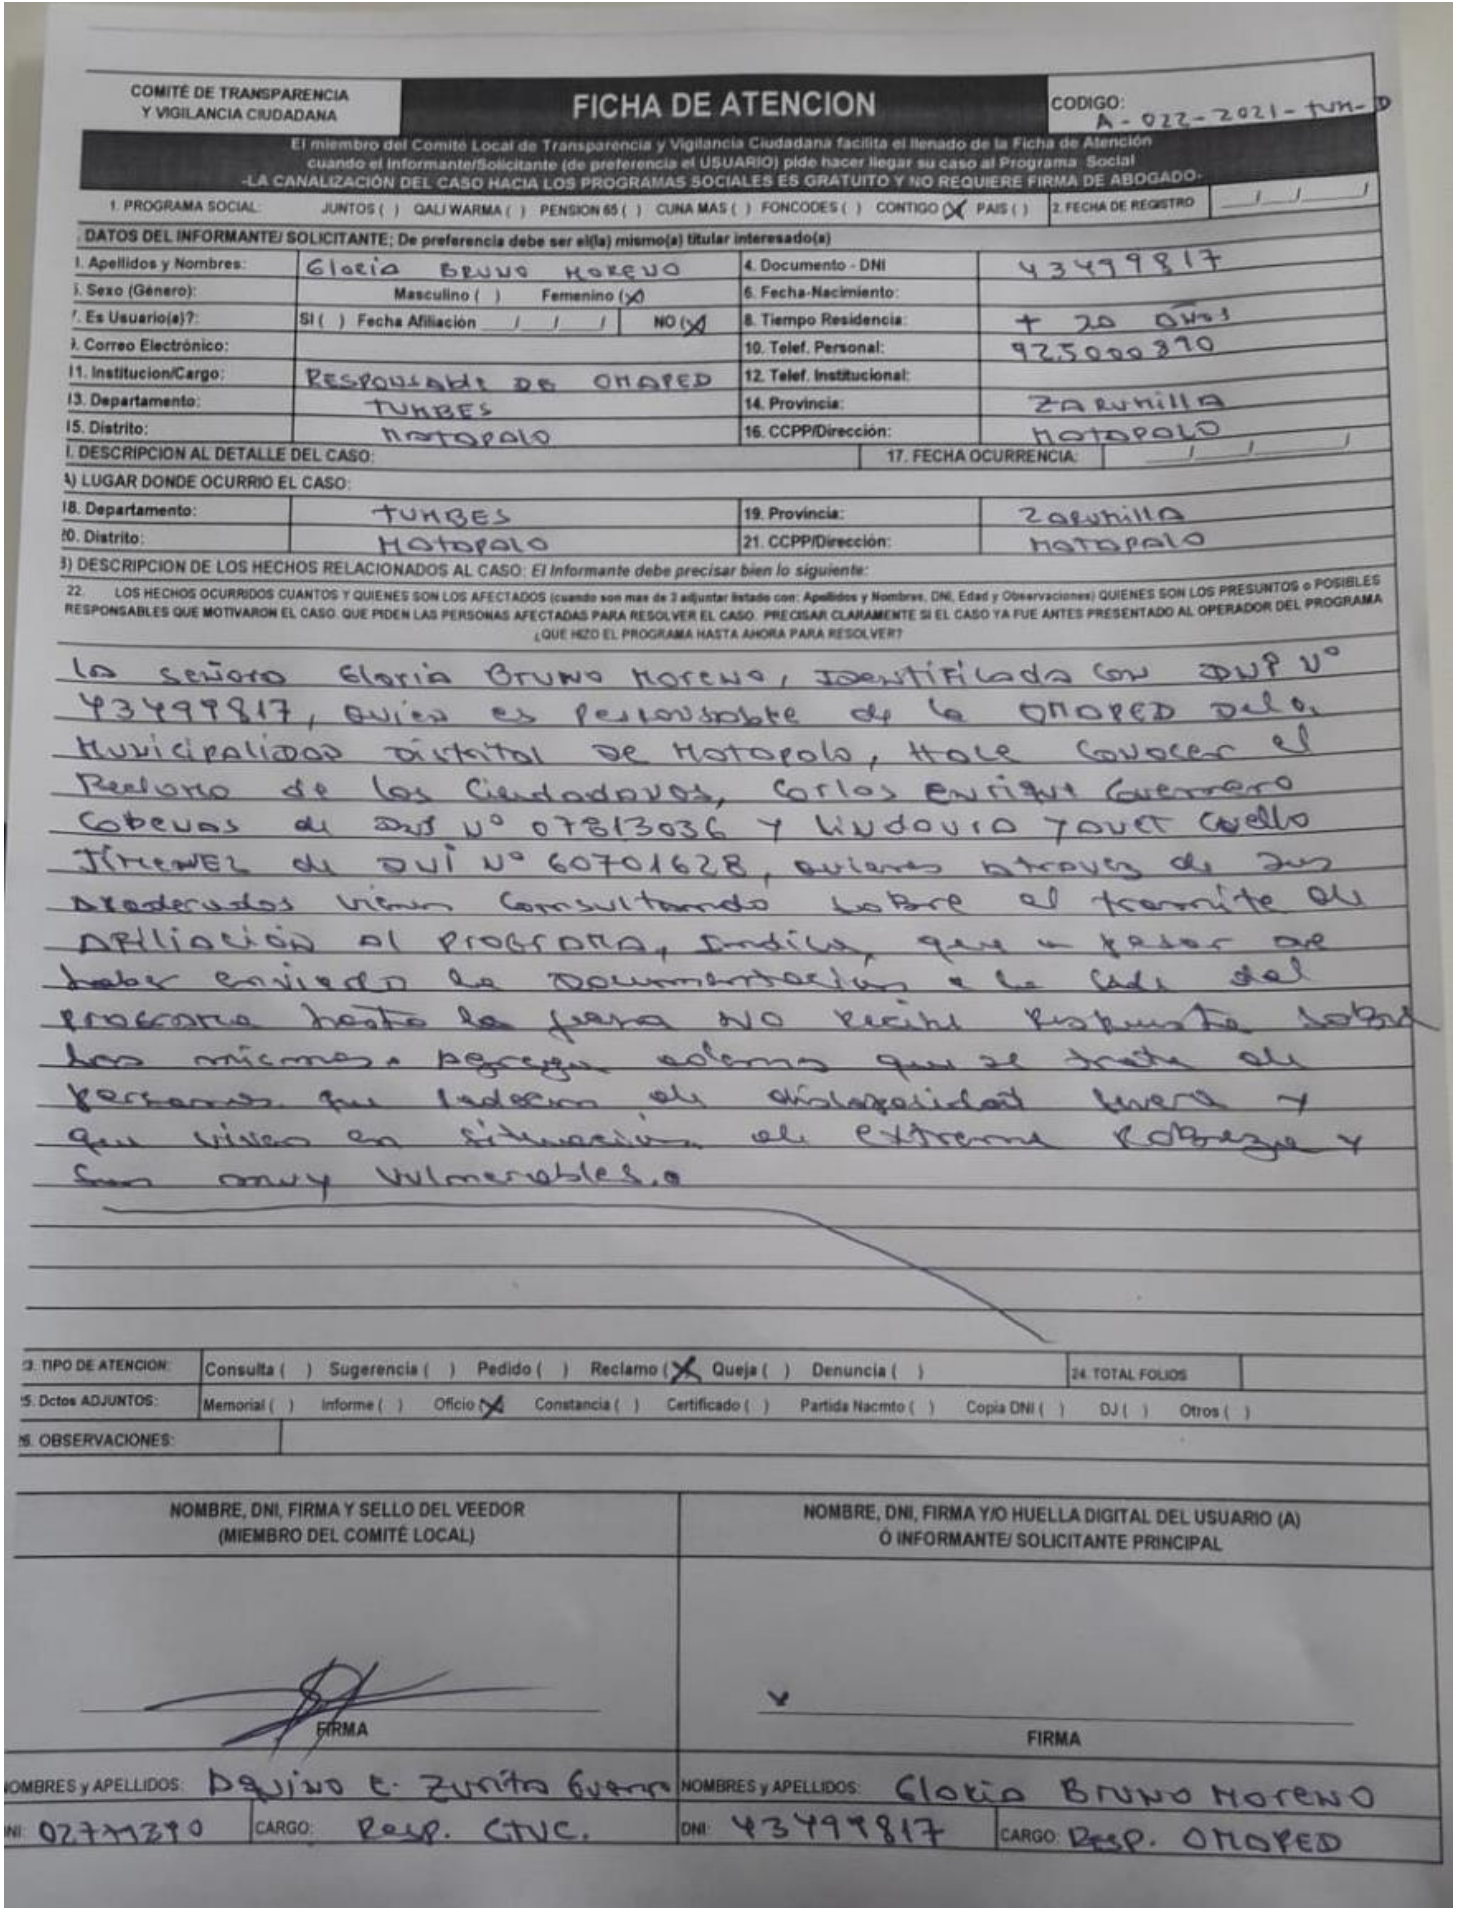 COMITÉ DE TRANSPARENCIA
Y VIGILANCIA CIUDADANA
FICHA DE ATENCION
CODIGO:
A-022-2021-tum-D
El miembro del Comité Local de Transparencia y Vigilancia Ciudadana facilita el llenado de la Ficha de Atención
cuando el Informante/Solicitante (de preferencia el USUARIO) pide hacer llegar su caso al Programa Social
-LA CANALIZACIÓN DEL CASO HACIA LOS PROGRAMAS SOCIALES ES GRATUITO Y NO REQUIERE FIRMA DE ABOGADO-
1. PROGRAMA SOCIAL: JUNTOS ( ) QALI WARMA ( ) PENSION 65 ( ) CUNA MAS ( ) FONCODES ( ) CONTIGO (X) PAIS ( ) 2. FECHA DE REGISTRO / /
. DATOS DEL INFORMANTE/ SOLICITANTE; De preferencia debe ser el(la) mismo(a) titular interesado(a)
. Apellidos y Nombres: Gloria BRUNO MORENO 4. Documento - DNI 43499817
. Sexo (Género): Masculino ( ) Femenino (X) 6. Fecha-Nacimiento:
. Es Usuario(a)?: SI ( ) Fecha Afiliación / / / NO (X) 8. Tiempo Residencia: + 20 años
. Correo Electrónico: 10. Telef. Personal: 925000870
11. Institucion/Cargo: RESPONSABLE DE OMAPED 12. Telef. Institucional:
13. Departamento: TUMBES 14. Provincia: ZARUMILLA
15. Distrito: MATAPALO 16. CCPP/Dirección: MATAPALO
I. DESCRIPCION AL DETALLE DEL CASO: 17. FECHA OCURRENCIA: / /
A) LUGAR DONDE OCURRIO EL CASO:
18. Departamento: TUMBES 19. Provincia: ZARUMILLA
20. Distrito: MATAPALO 21. CCPP/Dirección: MATAPALO
B) DESCRIPCION DE LOS HECHOS RELACIONADOS AL CASO: El Informante debe precisar bien lo siguiente:
22. LOS HECHOS OCURRIDOS CUANTOS Y QUIENES SON LOS AFECTADOS (cuando son mas de 3 adjuntar listado con: Apellidos y Nombres, DNI, Edad y Observaciones) QUIENES SON LOS PRESUNTOS o POSIBLES
RESPONSABLES QUE MOTIVARON EL CASO. QUE PIDEN LAS PERSONAS AFECTADAS PARA RESOLVER EL CASO. PRECISAR CLARAMENTE SI EL CASO YA FUE ANTES PRESENTADO AL OPERADOR DEL PROGRAMA
¿QUE HIZO EL PROGRAMA HASTA AHORA PARA RESOLVER?
La señora Gloria Bruno Moreno, Identificada con DNI Nº
43499817, quien es responsable de la OMAPED de la
Municipalidad Distrital de Matapalo, Hace conocer el
Reclamo de los Ciudadanos, Carlos Enrique Guerrero
Cobenas de DNI Nº 07813036 y Lindaura Yanet Cuello
Jimenez de DNI Nº 60701628, quienes atraves de sus
apoderados vienen consultando sobre el tramite de
Afiliación al Programa, Indica, que a pesar de
haber enviado la Documentación a la sede del
programa hasta la fecha NO recibe Respuesta sobre
los mismos. Agrega ademas que se trata de
personas que padecen de discapacidad severa y
que viven en situación de extrema Pobreza y
son muy vulnerables.
23. TIPO DE ATENCION: Consulta ( ) Sugerencia ( ) Pedido ( ) Reclamo (X) Queja ( ) Denuncia ( ) 24. TOTAL FOLIOS
25. Dctos ADJUNTOS: Memorial ( ) Informe ( ) Oficio (X) Constancia ( ) Certificado ( ) Partida Nacmto ( ) Copia DNI ( ) DJ ( ) Otros ( )
26. OBSERVACIONES:
NOMBRE, DNI, FIRMA Y SELLO DEL VEEDOR
(MIEMBRO DEL COMITÉ LOCAL)
NOMBRE, DNI, FIRMA Y/O HUELLA DIGITAL DEL USUARIO (A)
Ó INFORMANTE/ SOLICITANTE PRINCIPAL
FIRMA
x
FIRMA
NOMBRES y APELLIDOS: Aquino E. Zurita Guerrero NOMBRES y APELLIDOS: Gloria Bruno Moreno
DNI: CARGO: Resp. CTVC. DNI: 43499817 CARGO: Resp. OMAPED